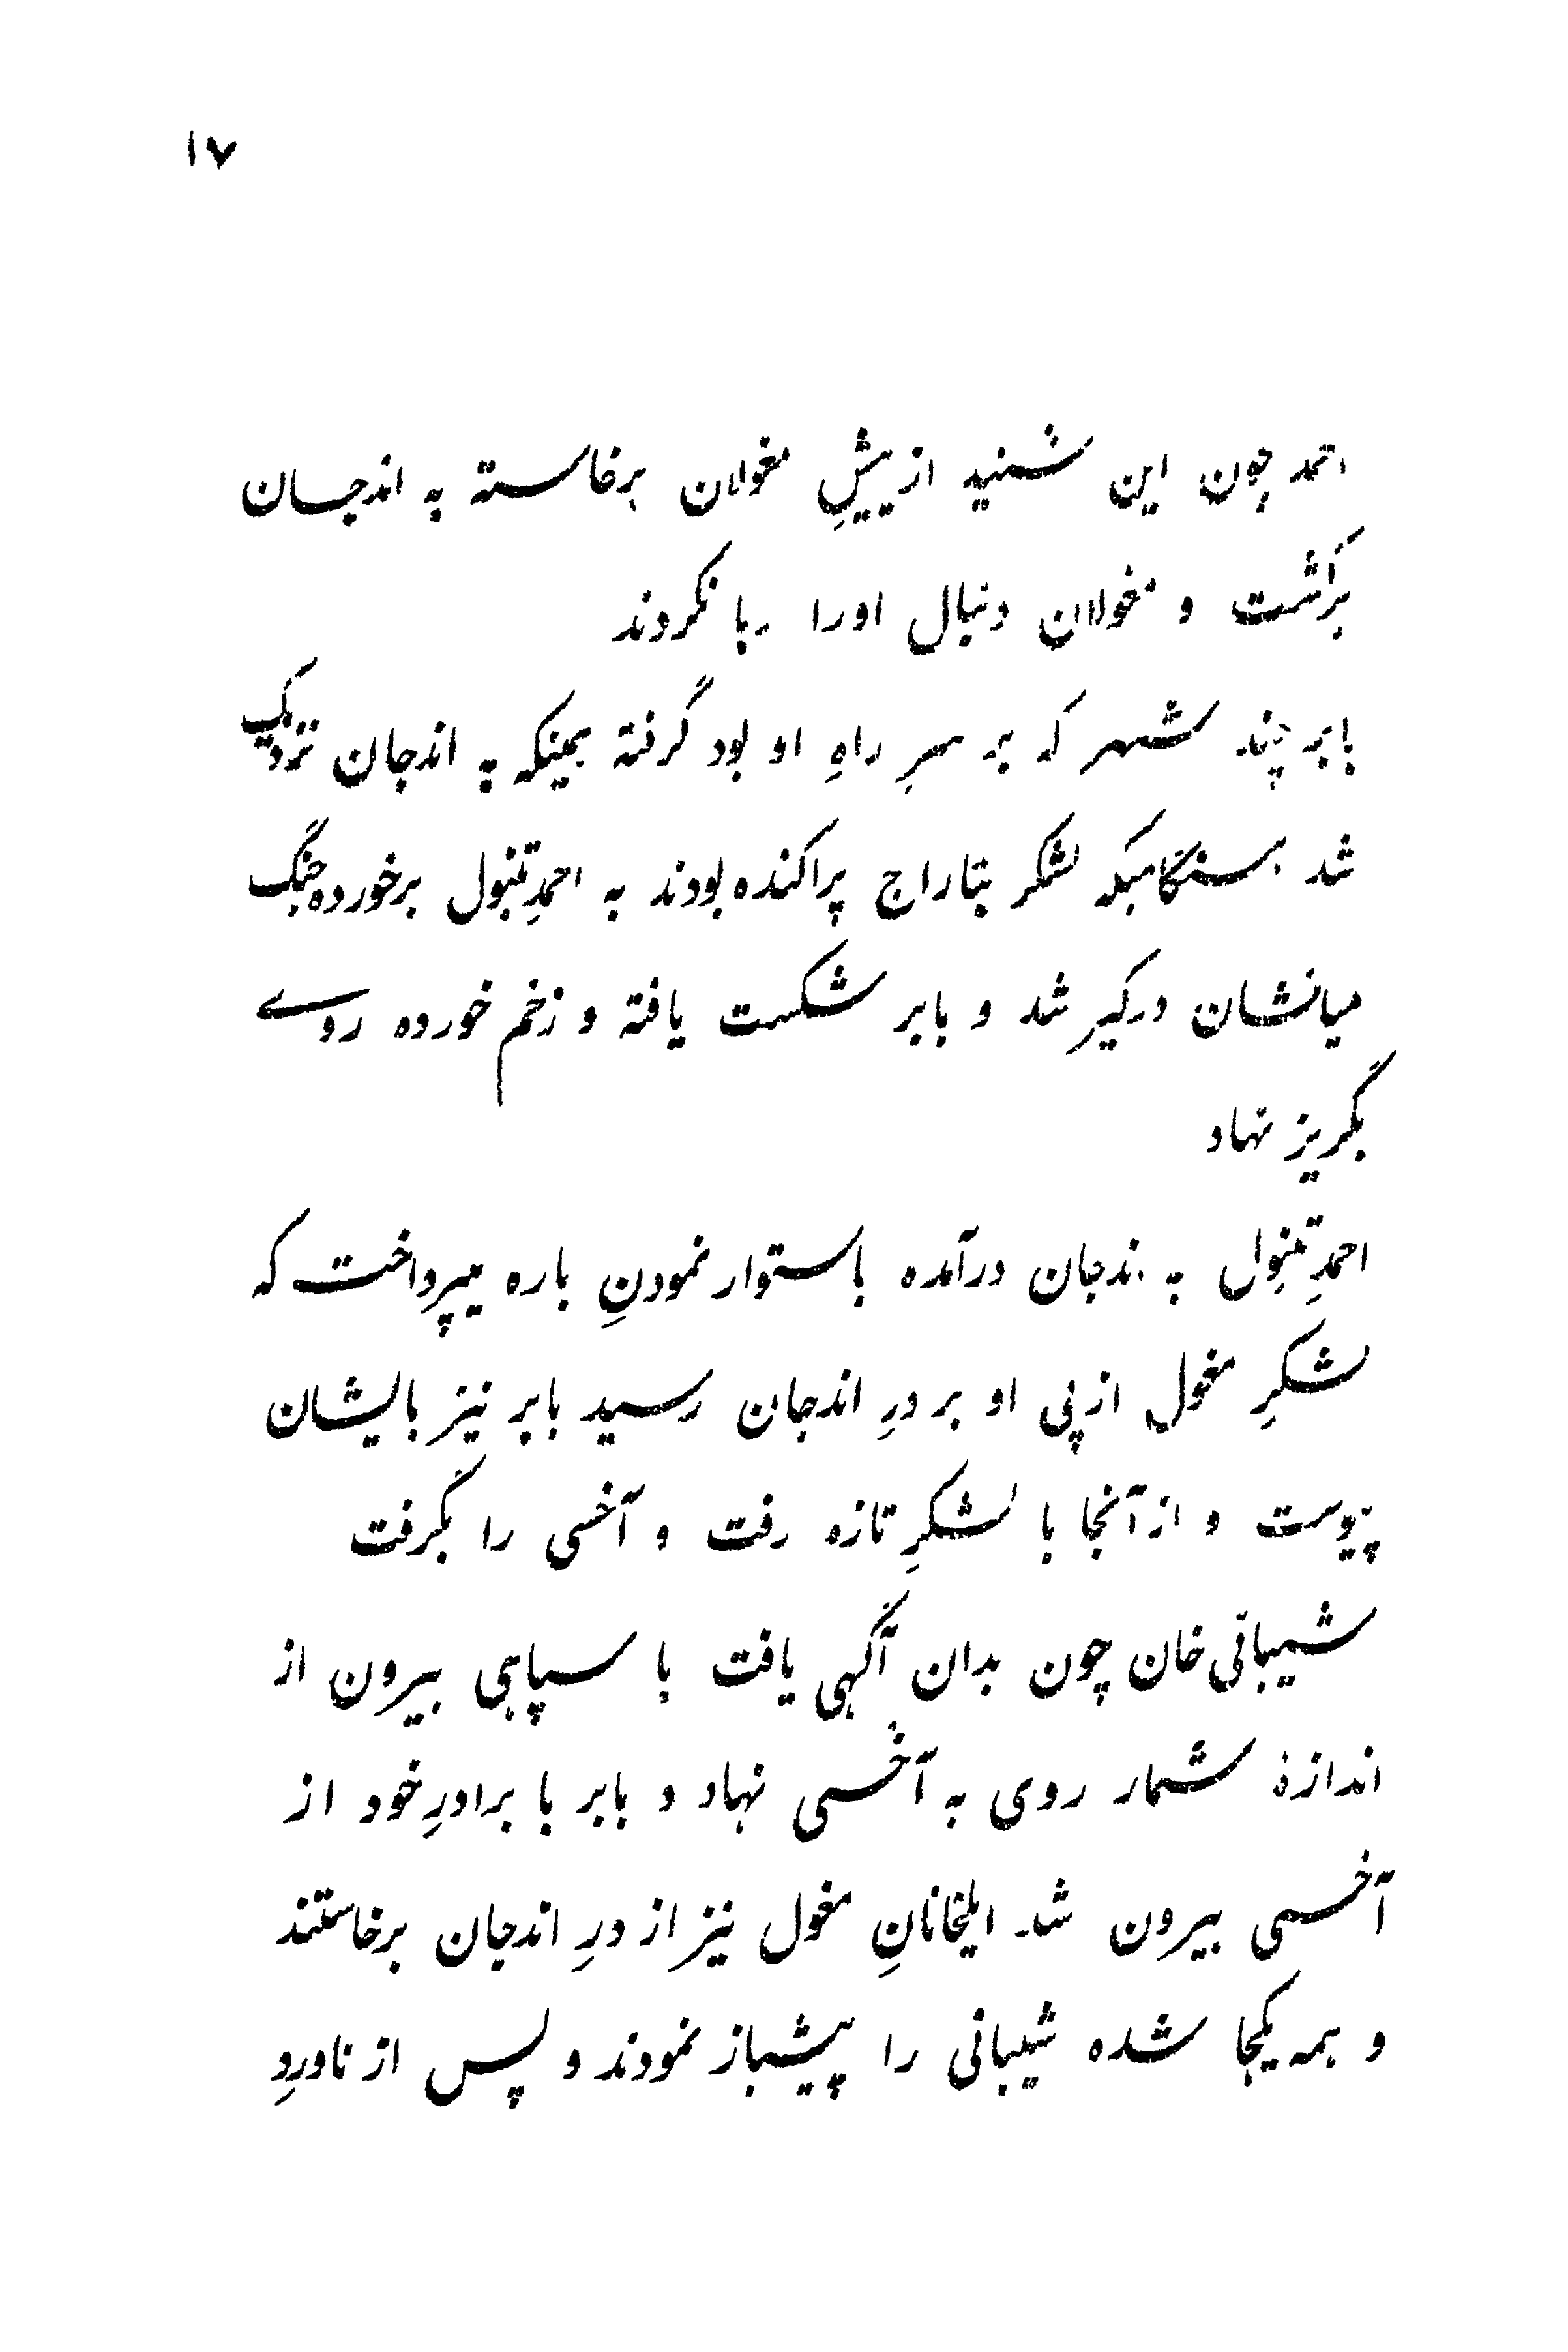 ۱۷
احمد چون این شنید از پیشِ مغولان برخاسته به اندجان
برگشت و مغولان دنبال اورا رها نکردند
بابر چند شهر که بر سرِ راهِ او بود گرفته همینکه به اندجان نزدیک
شد هنگامیکه لشکر بتاراج پراکنده بودند به احمدِ تنبول برخورده جنگ
میانشان درگیر شد و بابر شکست یافته و زخم خورده روے
بگریز نهاد
احمدِ تنبول به اندجان درآمده باستوار نمودنِ باره میپرداخت که
لشکرِ مغول از پی او بر درِ اندجان رسید بابر نیز بایشان
پیوست و از آنجا با لشکرِ تازه رفت و آخسی را بگرفت
شیبانی خان چون بدان آگهی یافت با سپاهی بیرون از
اندازهٔ شمار روی به آخسی نهاد و بابر با برادرِ خود از
آخسی بیرون شد ایلخانانِ مغول نیز از درِ اندجان برخاستند
و همه یکجا شده شیبانی را پیشباز نمودند و پس از ناوردِ